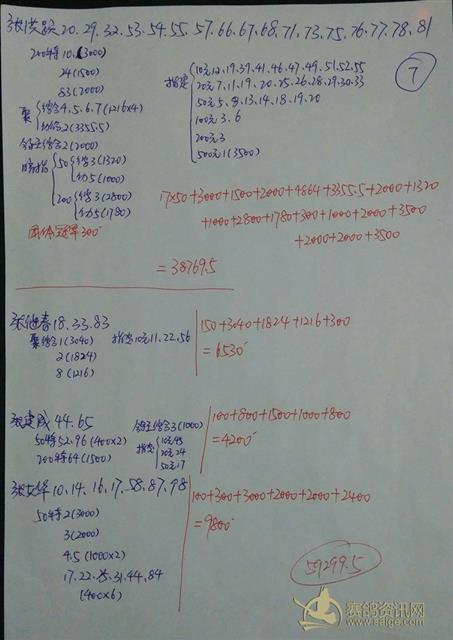 张洪跃20.29.32.53.54.55.57.66.67.68.71.73.75.76.77.78.81
200特10.(3000)
24(1500)
83(2000)
综4.5.6.7(1216x4)
2(3355.5)
综2(2000)
50 综3(1320)
5(1000)
200 综3(2800)
5(1780)
团体冠军300
指定
10元12.19.39.41.46.47.49.51.52.55
20元7.11.19.20.25.26.28.29.30.33
50元5.8.13.14.18.19.20
100元3.6
200元3
500元1(3500)
7
17x50+3000+1500+2000+4864+3355.5+2000+1320
+1000+2800+1780+300+1000+2000+3500
+2000+2000+3500
=38769.5
18.33.83
综1(3040)
2(1824)
8(1216)
指定10元11.22.56
150+3040+1824+1216+300
=6530
张建成44.65
50特52.96(400x2)
200特64(1500)
综3(1000)
指定
10元45
20元24
50元17
100+800+1500+1000+800
=4200
10.14.16.17.58.87.98
50特2(3000)
3(2000)
4.5(1000x2)
17.22.31.44.84
(400x6)
100+300+3000+2000+2000+2400
=9800
59299.5
赛鸽资讯网
www.saige.com